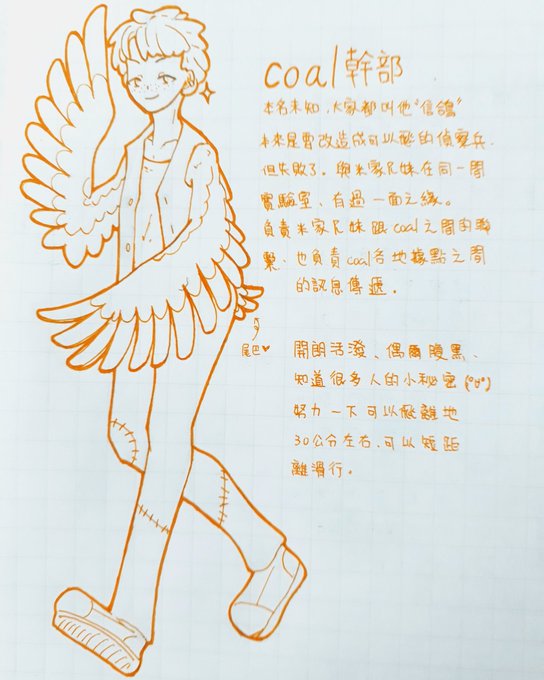 coal幹部
本名未知，大家都叫他"信鴿"
本來是要改造成可以飛的偵察兵，
但失敗了。與米家兄妹在同一間
實驗室，有過一面之緣。
負責米家兄妹跟coal之間的聯
繫、也負責coal各地據點之間
的訊息傳遞。
尾巴♥
開朗活潑、偶爾腹黑、
知道很多人的小秘密(°∀°)
努力一下可以飛離地
30公分左右，可以短距
離滑行。